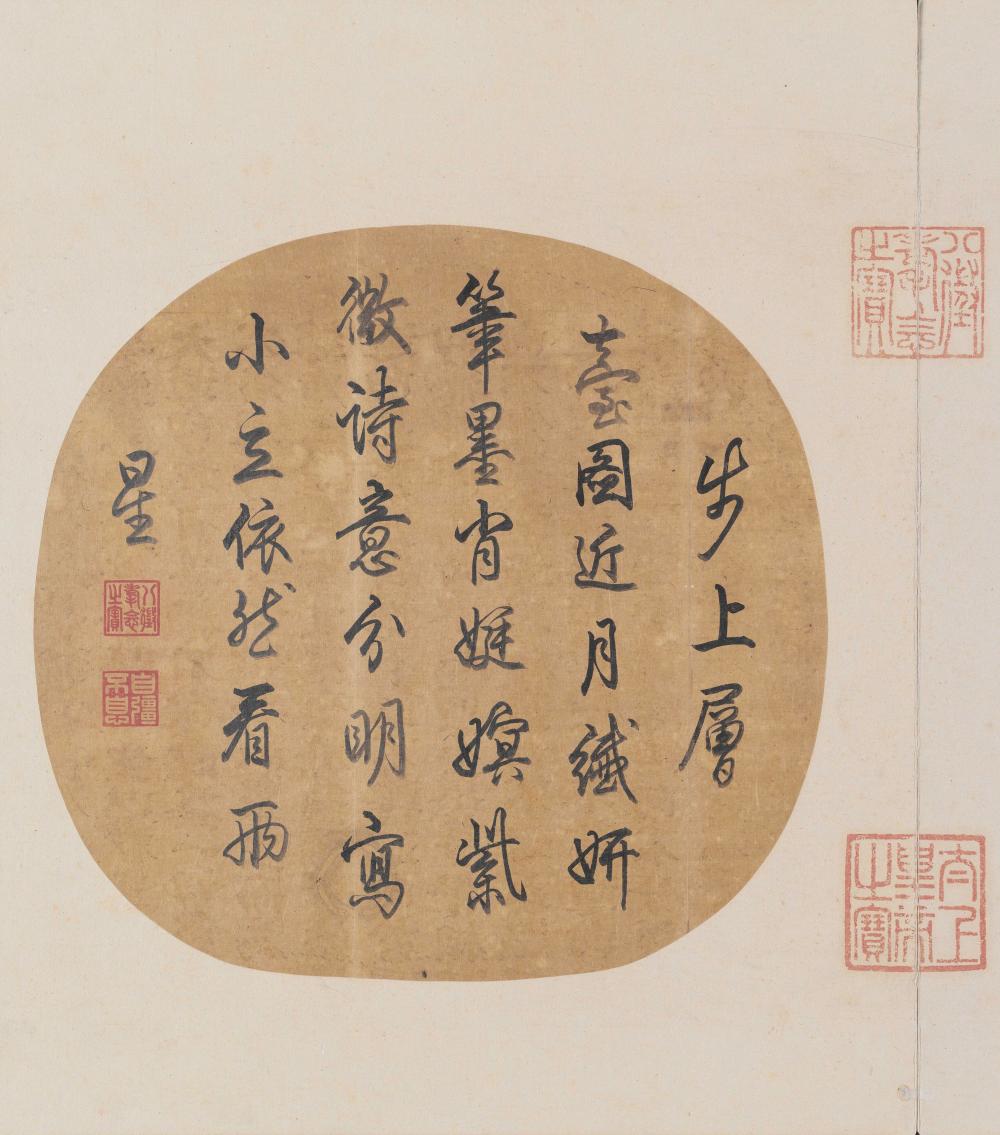 步上層
臺圖近月纖妍
筆墨肖娗嫇紫
微詩意分明寫
小立依然看兩
星
八徵耄念之寶
自彊不息
八徵耄念之寶
太上皇帝之寶